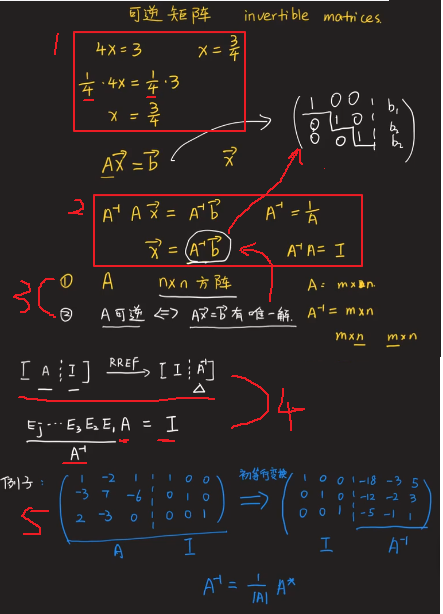 可逆矩阵 invertible matrices.
1
4x=3 x=3/4
1/4·4x=1/4·3
x=3/4
( 1 0 0 ┊ b₁
0 1 0 ┊ b₂
0 0 1 ┊ b₂ )
Ax⃗=b⃗ x⃗
2
A⁻¹Ax⃗=A⁻¹b⃗ A⁻¹=1/A
x⃗=A⁻¹b⃗ A⁻¹A=I
3
① A n×n 方阵 A=m×n.
② A可逆 ⟺ Ax⃗=b⃗有唯一解 A⁻¹=m×n
m×n m×n
[A┊I] RREF→ [I┊A⁻¹]
△
4
Eⱼ···E₃E₂E₁A=I
A⁻¹
5
例子: ( 1 -2 1 ┊ 1 0 0 初等行变换 ( 1 0 0 ┊ -18 -3 5
-3 7 -6 ┊ 0 1 0 ⟹ 0 1 0 ┊ -12 -2 3
2 -3 0 ┊ 0 0 1 ) 0 0 1 ┊ -5 -1 1 )
A I I A⁻¹
A⁻¹=1/|A| A*